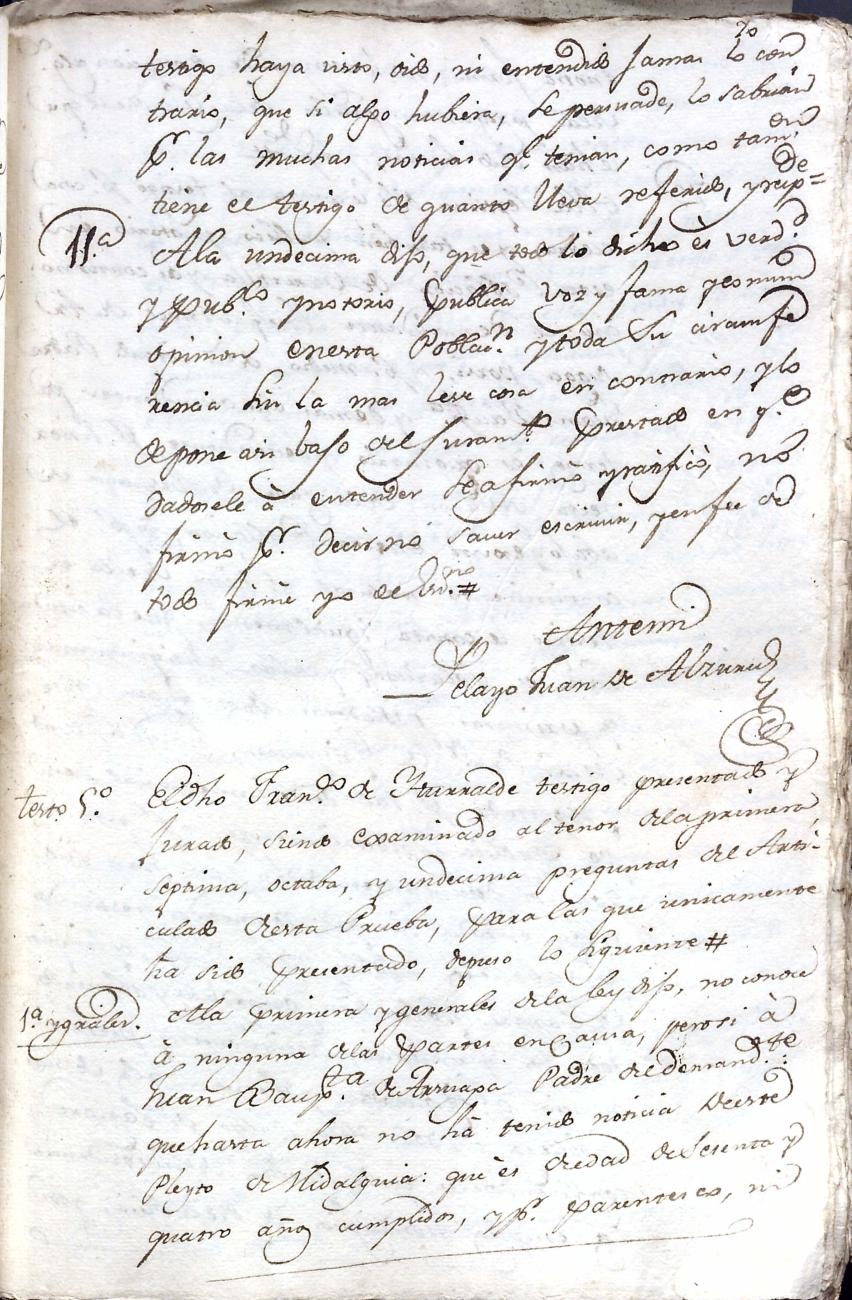 testigo haya visto, oido, ni entendido jamas lo con
trario, que si algo hubiera, se persuade, lo sabrian
pr. las muchas noticias q.e tenian, como tam.en
tiene el testigo de quanto lleva referido, y resp.de=
11.a Ala undecima dijo, que todo lo dicho es verd.d
y pub.co y notorio, publica voz y fama y comun
opinion enesta Poblac.n y toda su circunfe
rencia sin la mas leve cosa en contrario, y lo
depone asi bajo del juram.to prestado en q.e
dadosele à entender se afirmò y ratificò, no
firmò pr. decir no saver escrivir, y enfee de
todo firme yo el Es.no #
Antemi
Pelayo Juan de Alzuru
testo. 5.o El dho Fran.co de Yturralde testigo presentado y
jurado, siendo examinado al tenor dela primera,
septima, octaba, y undecima preguntas del Arti-
culado desta Prueba, para las que unicamente
ha sido presentado, depuso lo siguiente #
1.a y grales. Ala primera y generales dela ley dijo, no conoce
à ninguna delas partes encausa, pero si à
Juan Baup.ta de Padre del demand.te:
que hasta ahora no hà tenido noticia deeste
Pleyto de Hidalguia: que es de edad de sesenta y
quatro años cumplidos, y pr. parentesco, ni